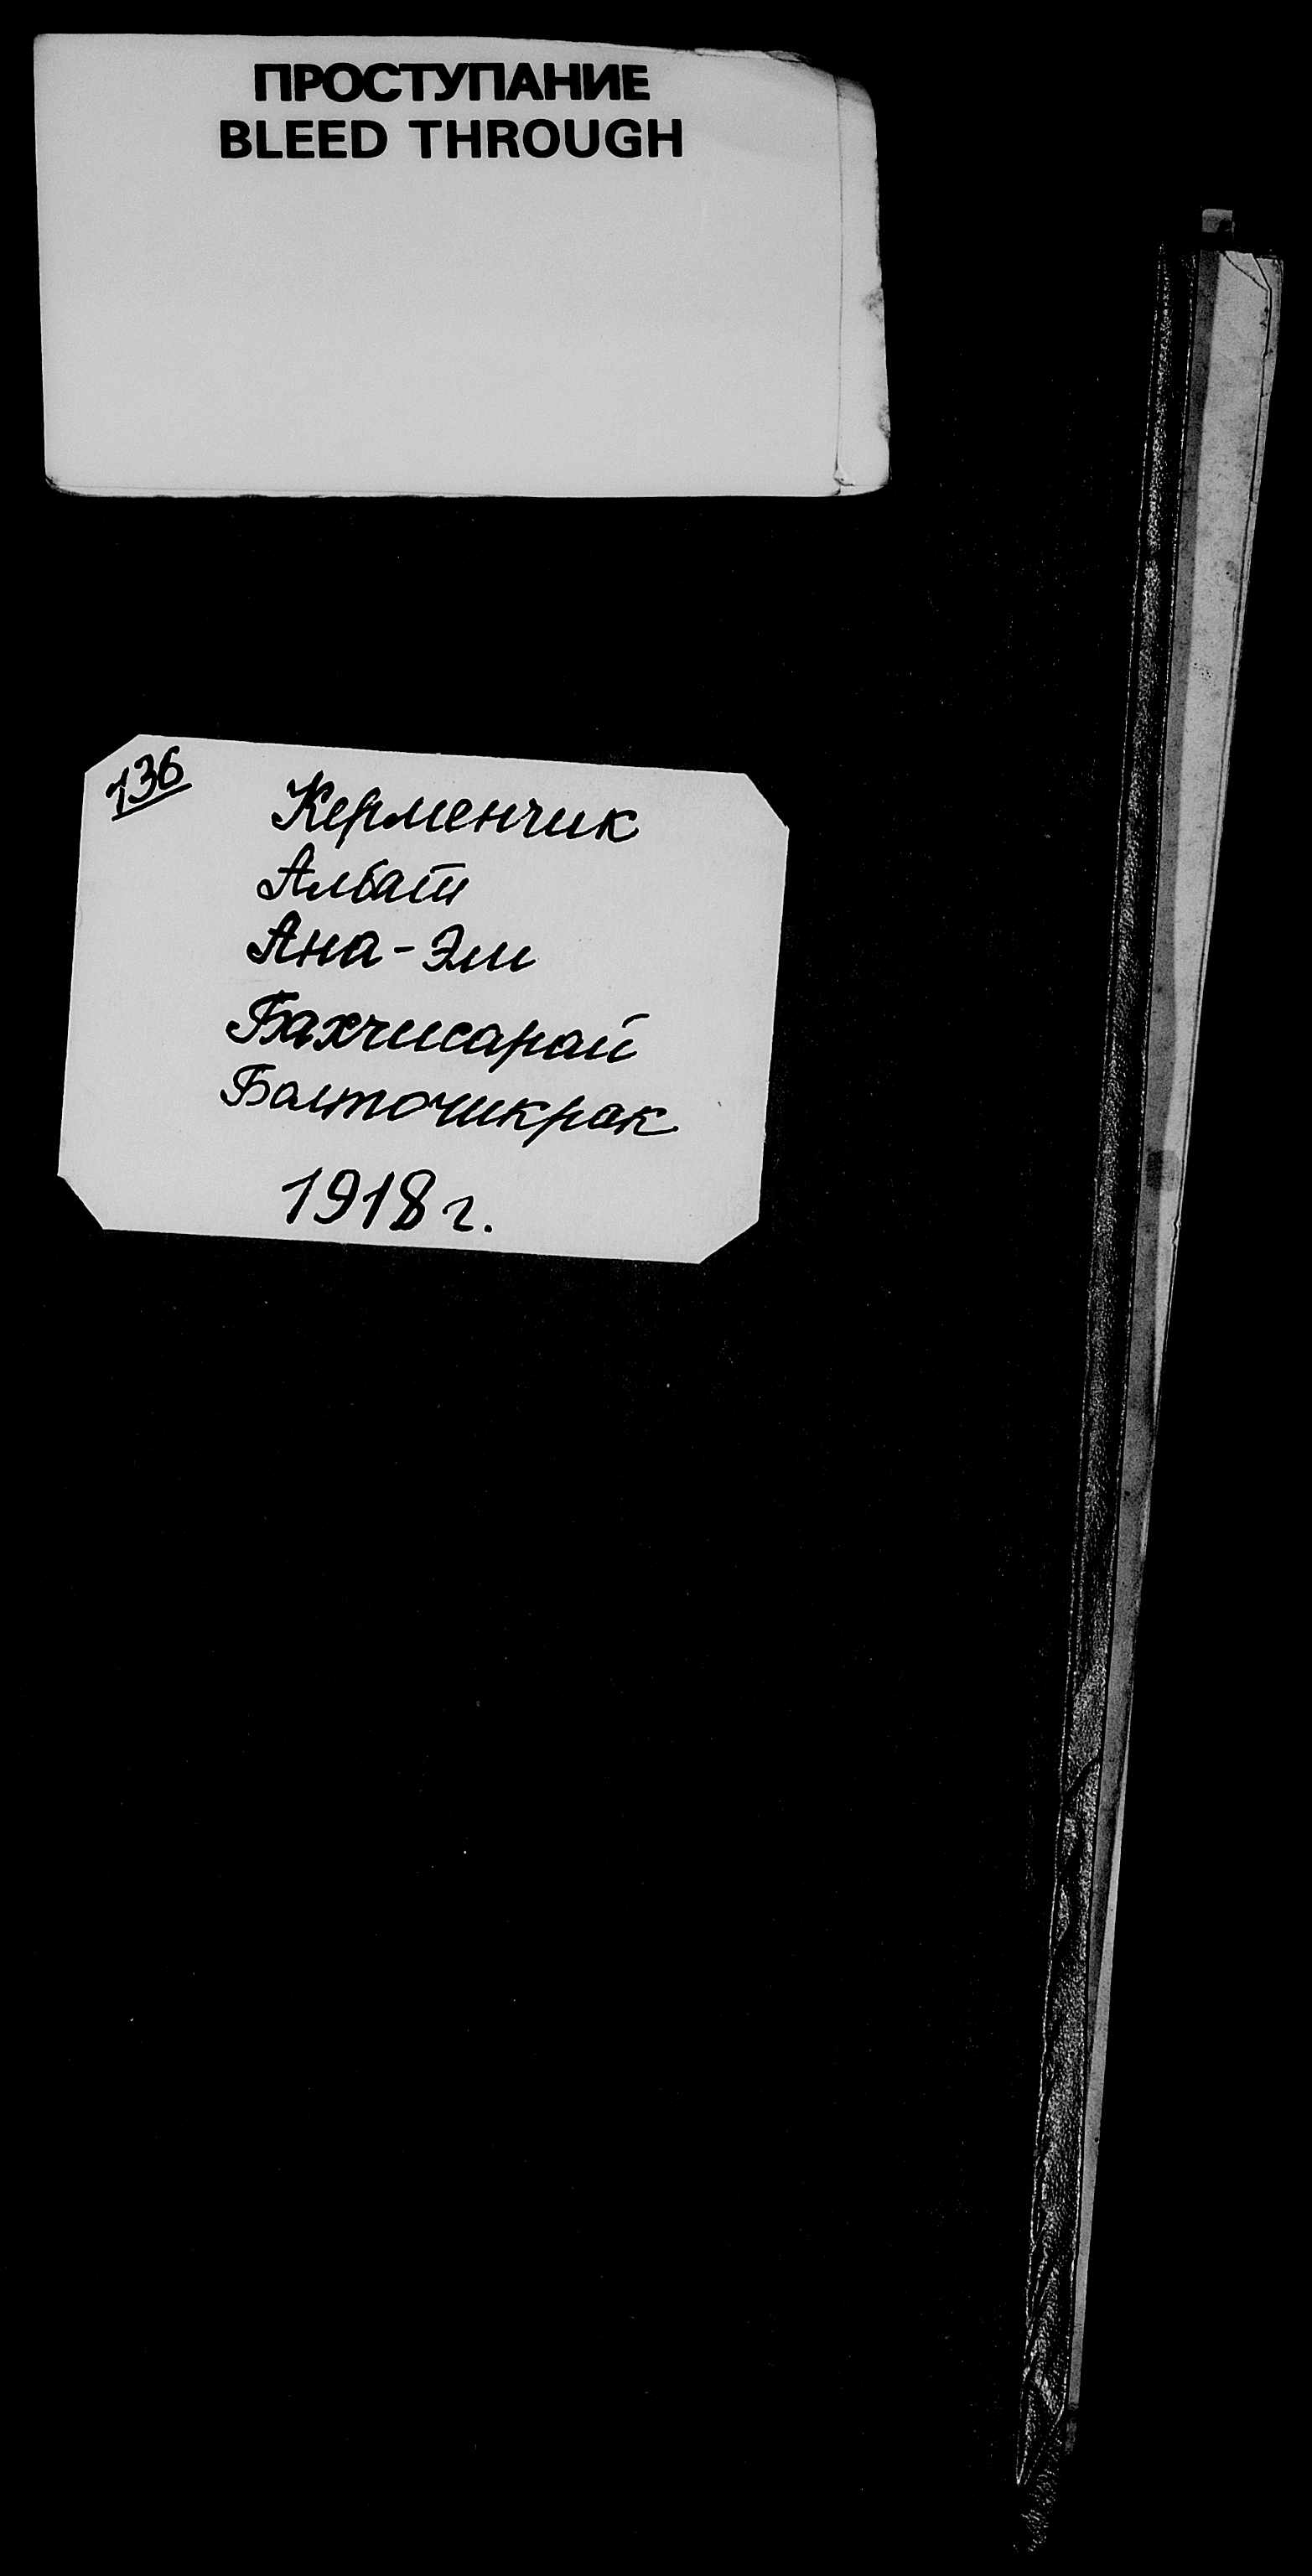 ПРОСТУПАНИЕ
BLEED THROUGH
136
Керменчик
Албат
Ана-Эли
Бахчисарай
Балточикрак
1918 г.